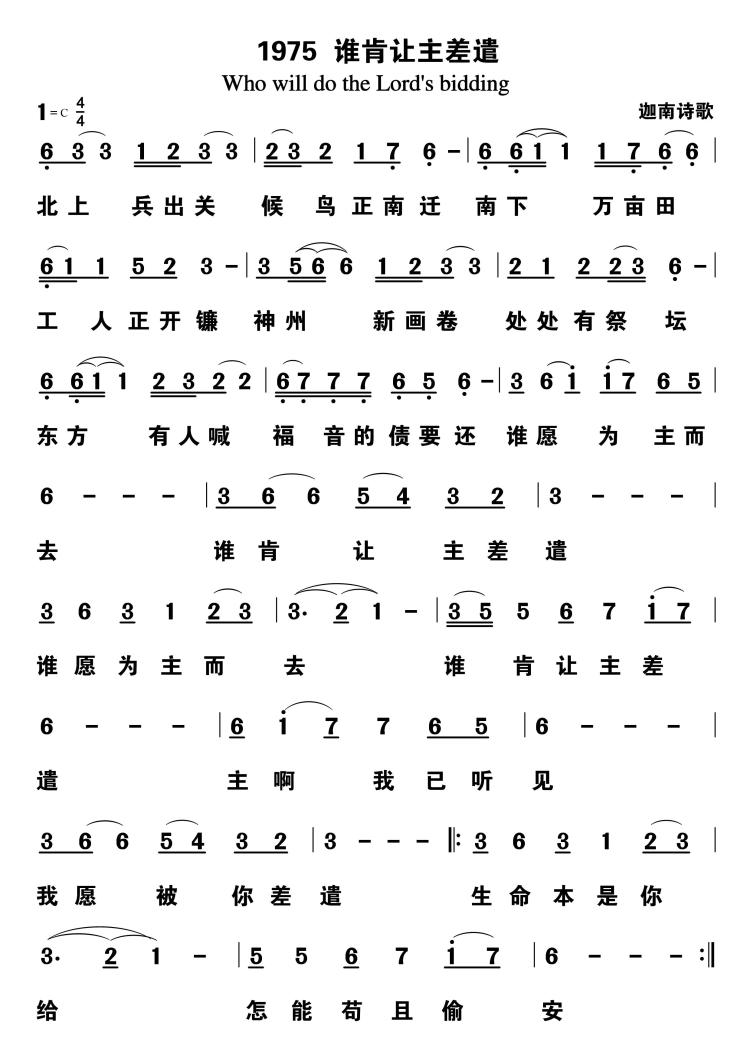 1975 谁肯让主差遣
Who will do the Lord's bidding
1=C 4/4 迦南诗歌
6 3 3 1 2 3 3 | 2 3 2 1 7 6 - | 6 6 1 1 1 7 6 6 |
北上 兵出关 候鸟正南迁 南下 万亩田
6 1 1 5 2 3 - | 3 5 6 6 1 2 3 3 | 2 1 2 2 3 6 - |
工人正开镰 神州 新画卷 处处有祭坛
6 6 1 1 2 3 2 2 | 6 7 7 7 6 5 6 - | 3 6 i i 7 6 5 |
东方 有人喊 福音的债要还 谁愿为主而
6 - - - | 3 6 6 5 4 3 2 | 3 - - - |
去 谁肯让主差遣
3 6 3 1 2 3 | 3. 2 1 - | 3 5 5 6 7 i 7 |
谁愿为主而去 谁肯让主差
6 - - - | 6 i 7 7 6 5 | 6 - - - |
遣 主啊我已听见
3 6 6 5 4 3 2 | 3 - - - ‖: 3 6 3 1 2 3 |
我愿被你差遣 生命本是你
3. 2 1 - | 5 5 6 7 i 7 | 6 - - - :‖
给 怎能苟且偷安